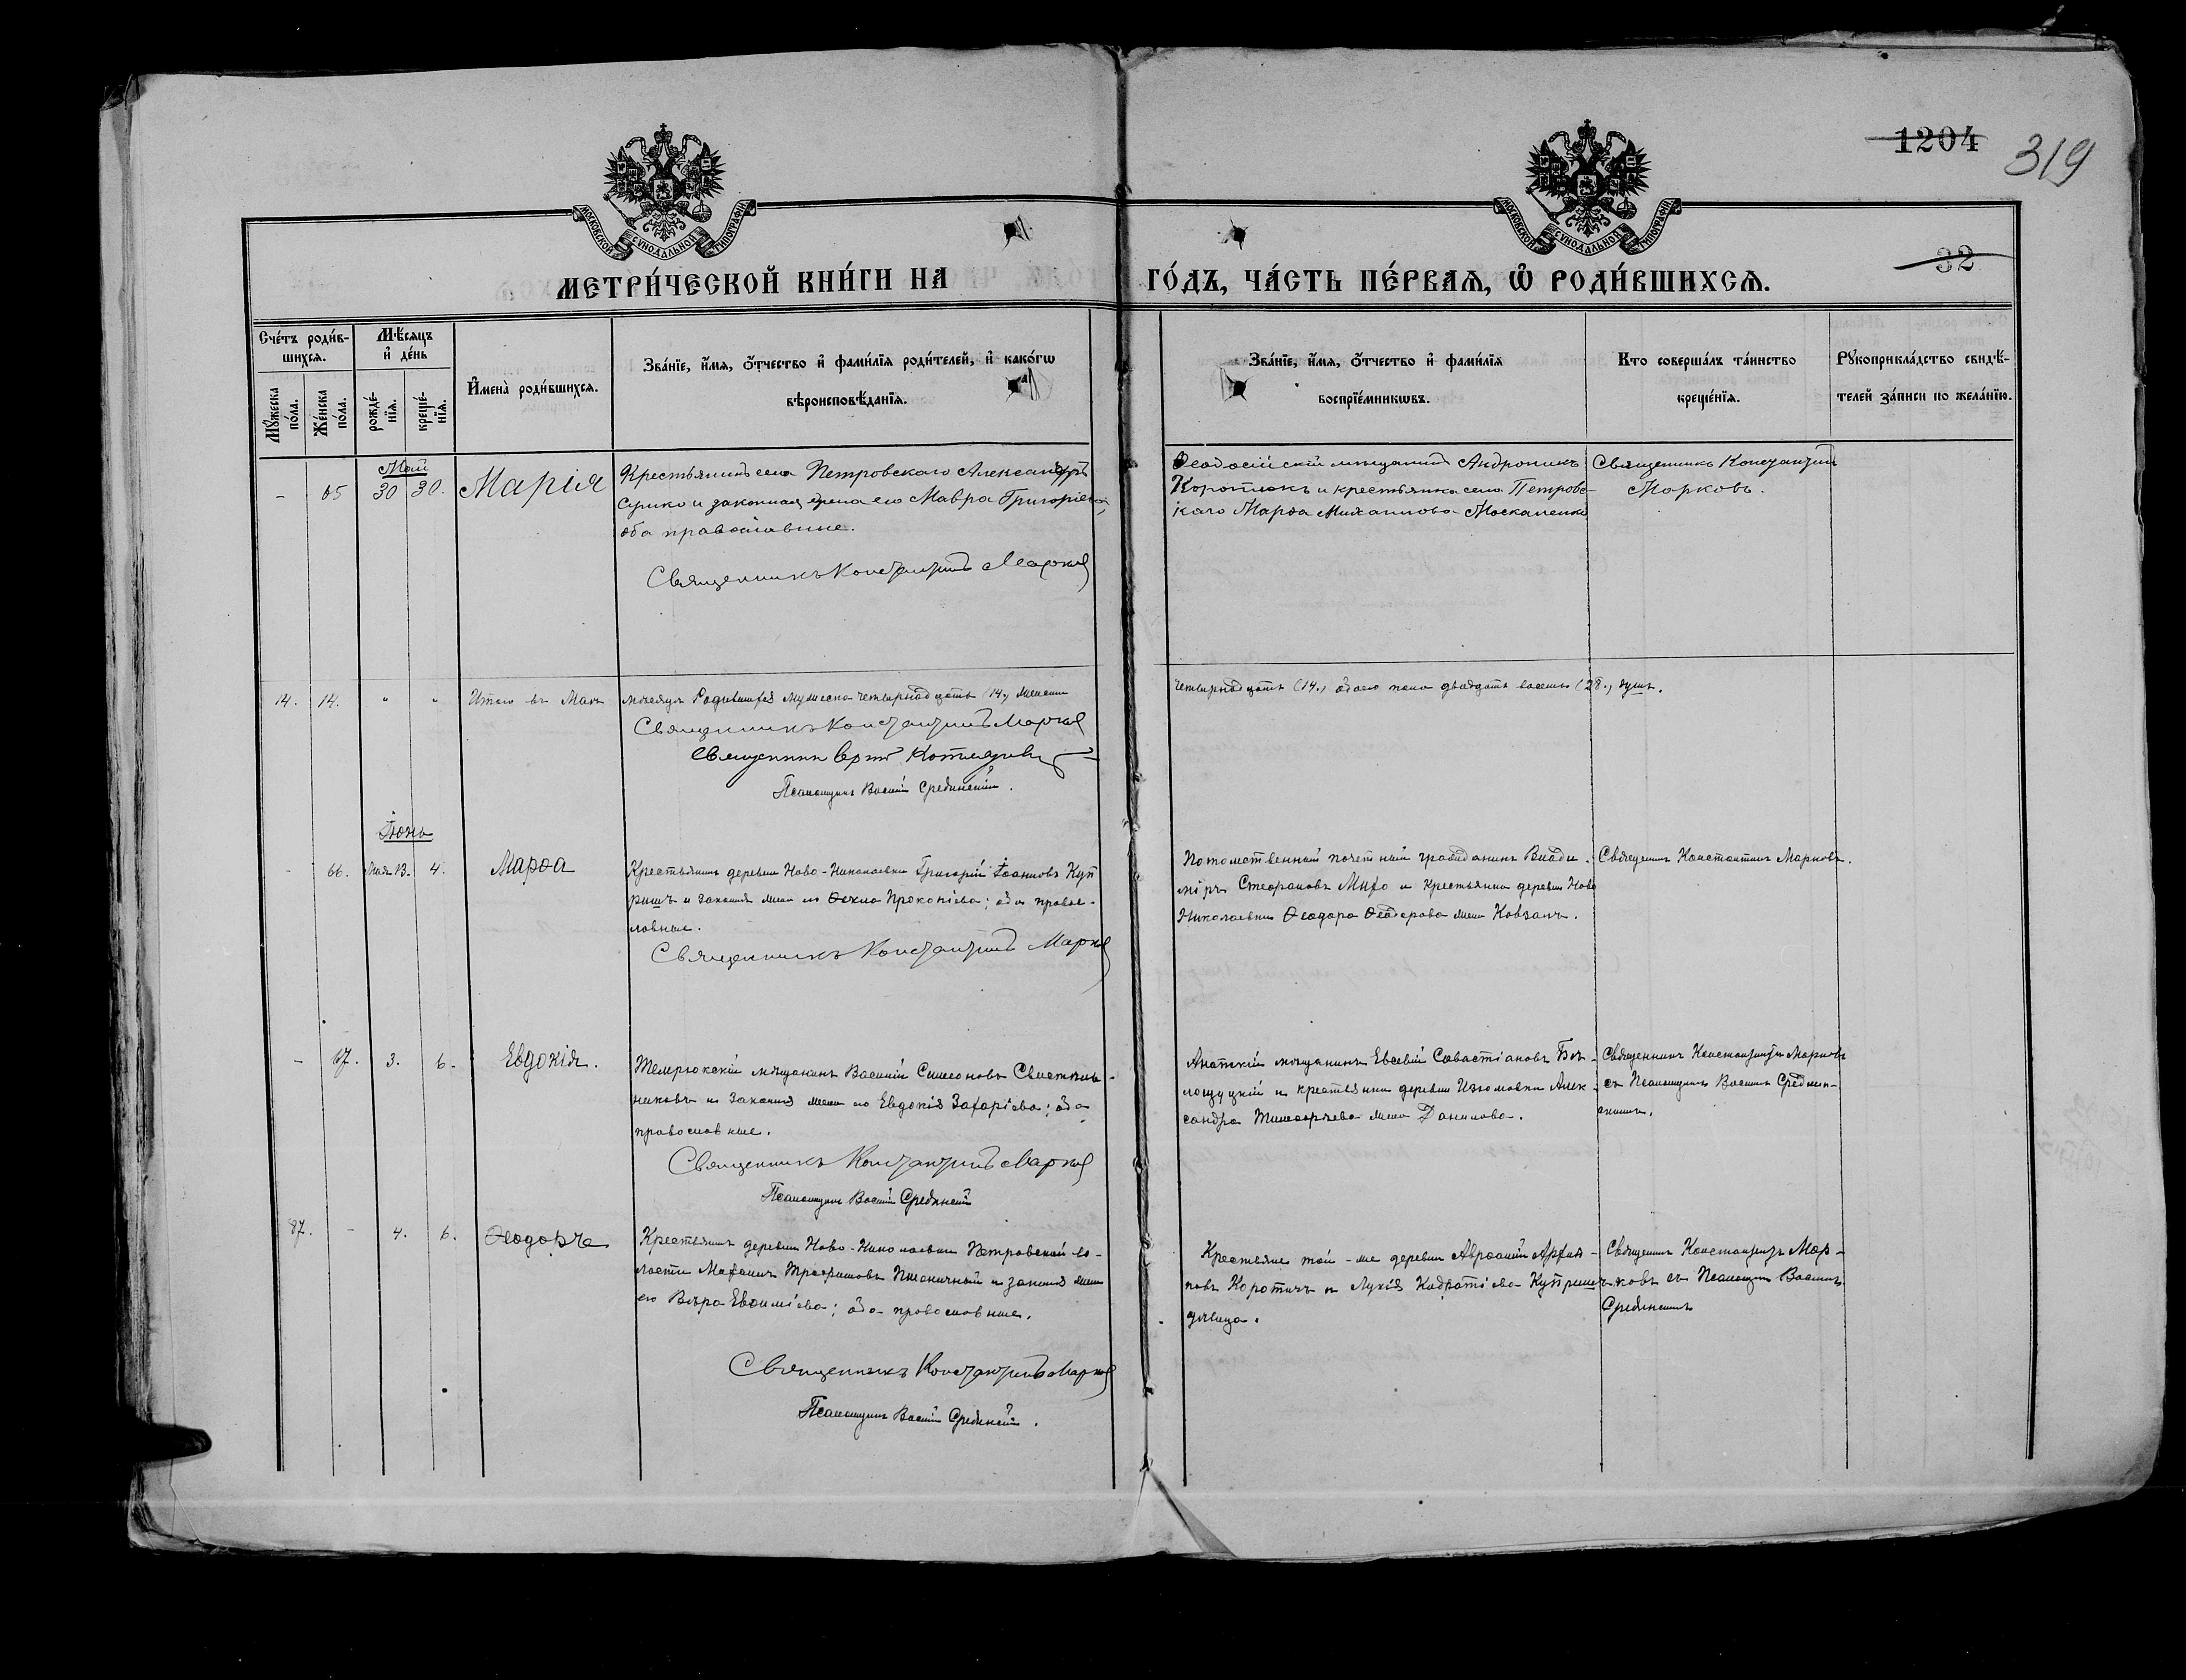 1204
319
32
МОСКОВСКОЙ СУНОДАЛЬНОЙ ТИПОГРАФІИ
МОСКОВСКОЙ СУНОДАЛЬНОЙ ТИПОГРАФІИ
МЕТРИ́ЧЕСКОЙ КНИ́ГИ НА ГО́ДЪ, ЧА́СТЬ ПЕ́РВАѦ, Ѽ РОДИ́ВШИХСѦ.
Сче́тъ роди́в-
шихсѧ.
Мꙋ́жеска по́ла.
Же́нска по́ла.
Мѣ́сѧцъ
и҆ де́нь
рожде́-
нїѧ.
креще́-
нїѧ.
И҆мена̀ роди́вшихсѧ.
Зва́нїе, и҆́мѧ, ѻ҆́тчество и҆ фами́лїѧ роди́телей, и҆ како́гѡ
вѣроисповѣ́данїѧ.
Зва́нїе, и҆́мѧ, ѻ҆́тчество и҆ фами́лїѧ
воспрїе́мникѡвъ.
Кто соверша́лъ та́инство
креще́нїѧ.
Рꙋкоприкла́дство свидѣ́-
телей за́писи по жела́нїю.
Май
- 65 30 30. Марія
Крестьянинъ села Петровскаго Александръ
и законная жена его Мавра Григорiева,
оба православные.
Священникъ Константинъ Марковъ
Ѳеодосійскій мѣщанинъ Андроникъ
Коротюкъ и крестьянка села Петровс-
каго Марѳа Михаилова Москаленко
Священникъ Константинъ
Марковъ.
14. 14. " " Итого въ Маѣ мѣсяцѣ родившихся мужеска четырнадцать (14.) женска
четырнадцать (14.) обоего пола двадцать восемь (28.) душъ.
Священникъ Константинъ Марковъ
Священникъ
Псаломщикъ Василій Срединскій.
Іюнь
- 66. Мая 13. 4. Марѳа
Крестьянинъ деревни Ново-Николаевки Григорій Іоанновъ Куп
ришъ и законная жена его Ѳекла Прокопіева; оба правос-
лавные.
Священникъ Константинъ Марковъ
Потомственный почетный гражданинъ Влади-
міръ Стефановъ и крестьянка деревни Ново
Николаевки Ѳеодора Ѳеодорова жена Ковзанъ.
Священникъ Константинъ Марковъ.
- 67. 3. 6. Евдокія.
Темрюкскій мѣщанинъ Василій Симеоновъ Свистель-
никовъ и законная жена его Евдокія Захаріева; оба
православные.
Священникъ Константинъ Марковъ
Псаломщикъ Василій Срединскій
Анапскій мѣщанинъ Евсевій Савастіановъ Бѣ-
лоцуцкій и крестьянка деревни Изюмовки Алек-
сандра Тимоѳеева жена Данилова.
Священникъ Константинъ Марковъ
съ Псаломщик. Василіемъ Средин-
скимъ.
87. - 4. 6. Ѳеодоръ
Крестьянинъ деревни Ново-Николаевки Петровской во-
лости Трофимовъ Пшеничный и законная жена
его Вѣра Евѳиміева; оба православные.
Священникъ Константинъ Марковъ
Псаломщикъ Василій Срединскій.
Крестьяне той-же деревни Авраамій
повъ Коротичъ и Лукія Кодратіева Купришъ
дѣвица.
Священникъ Константинъ Мар-
ковъ съ Псаломщик. Василіемъ
Срединскимъ